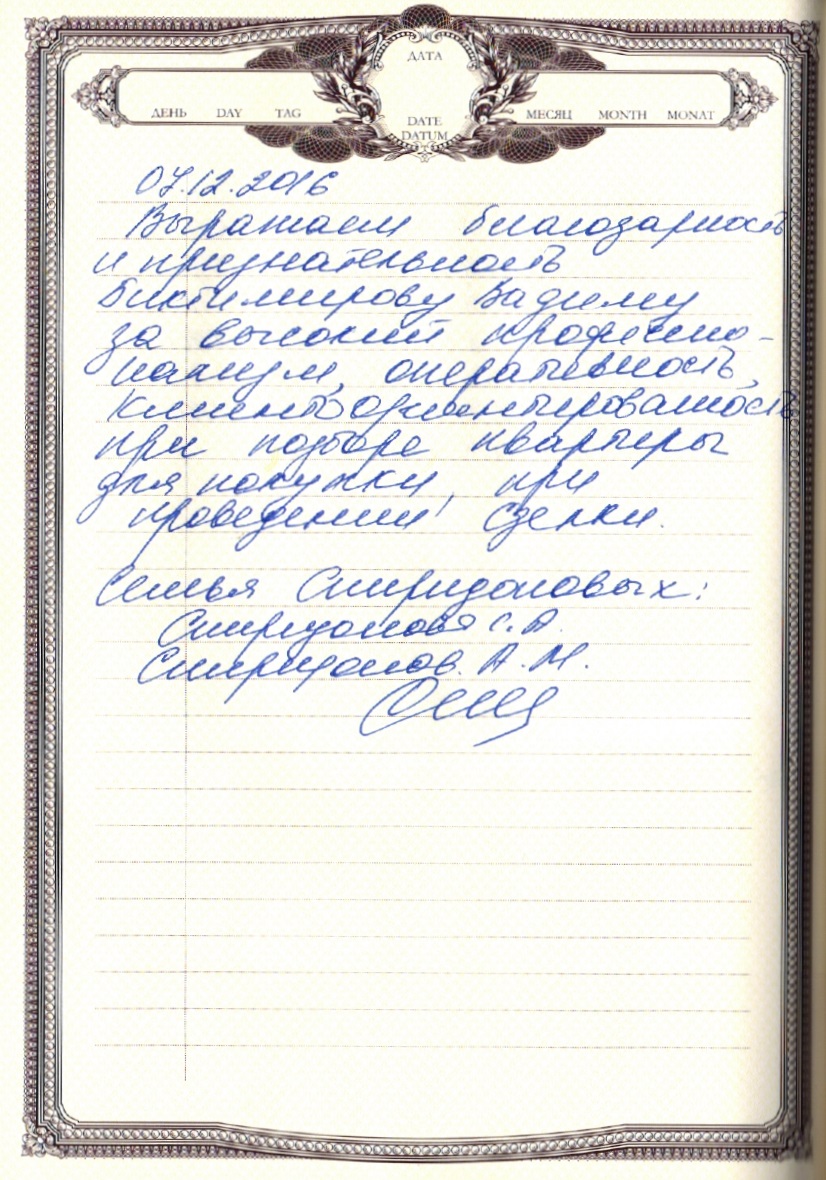 ДАТА
ДЕНЬ DAY TAG
DATE
DATUM
МЕСЯЦ MONTH MONAT
07.12.2016
Выражаем благодарность
и признательность
Биктимирову Вадиму
за высокий профессио-
нализм, оперативность,
клиентоориентированность
при подборе квартиры
для покупки, при
проведении сделки.
Семья Спиридоновых:
Спиридонова С. А.
Спиридонов. А. М.